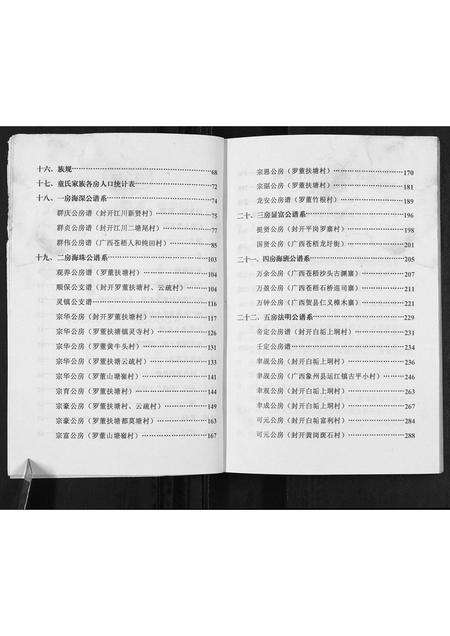 十六、族规 68
十七、董氏家族各房人口统计表 72
十八、一房海深公谱系 74
群庆公房谱（封开江川新贤村） 75
群贞公房谱（封开江川二塘尾村） 77
群伟公房谱（广西苍梧人和纯田村） 82
十九、二房海珠公谱系 103
观养公房谱（罗董扶塘村） 104
顺保公支谱（封开罗董扶塘村、云疏村） 107
灵镇公支谱 116
宗华公房（罗董扶塘村） 117
宗华公房（罗董扶塘镇灵寺村） 126
宗华公房（罗董黄牛头村） 131
宗华公房（罗董扶塘云疏村） 133
宗华公房（罗董山塘嶺村） 141
宗育公房（罗董扶塘村） 144
宗豪公房（罗董扶塘村、云疏村） 149
宗豪公房（罗董扶塘都莫塘村） 163
宗富公房（罗董山塘嶺村） 167
宗恩公房（罗董扶塘村） 170
宗琚公房（罗董扶塘村） 181
龙安公房（罗董竹根村） 189
二十、三房显富公谱系 196
挺贤公房（封开平岗罗寨村） 198
国贤公房（广西苍梧龙圩街） 201
二十一、四房海斑公谱系 205
万金公房（广西苍梧沙头古渊寨） 206
万盈公房（广西苍梧石桥巡司寨） 211
万钟公房（广西贺县仁义樟木寨） 221
二十二、五房法明公谱系 229
公房谱（封开白垢上垌村） 232
壬定公房谱 234
公房（封开白垢上垌村） 236
公房（广西象州县运江镇古平小村） 246
公房（封开白垢上垌村） 263
公房（封开白垢上垌村） 267
可元公房（封开白垢富利村） 284
可元公房（封开黄岗斑石村） 288